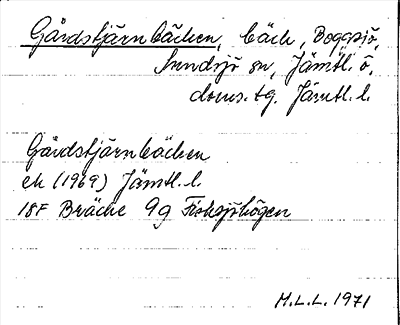 Gårdstjärnbäcken, bäck, Boggsjö,
Sundsjö sn, Jämtl. ö.
doms.tg. Jämtl. l.
Gårdstjärnbäcken
ek (1969) Jämtl. l.
18F Bräcke 9g Fisksjöhögen
M.L.L. 1971